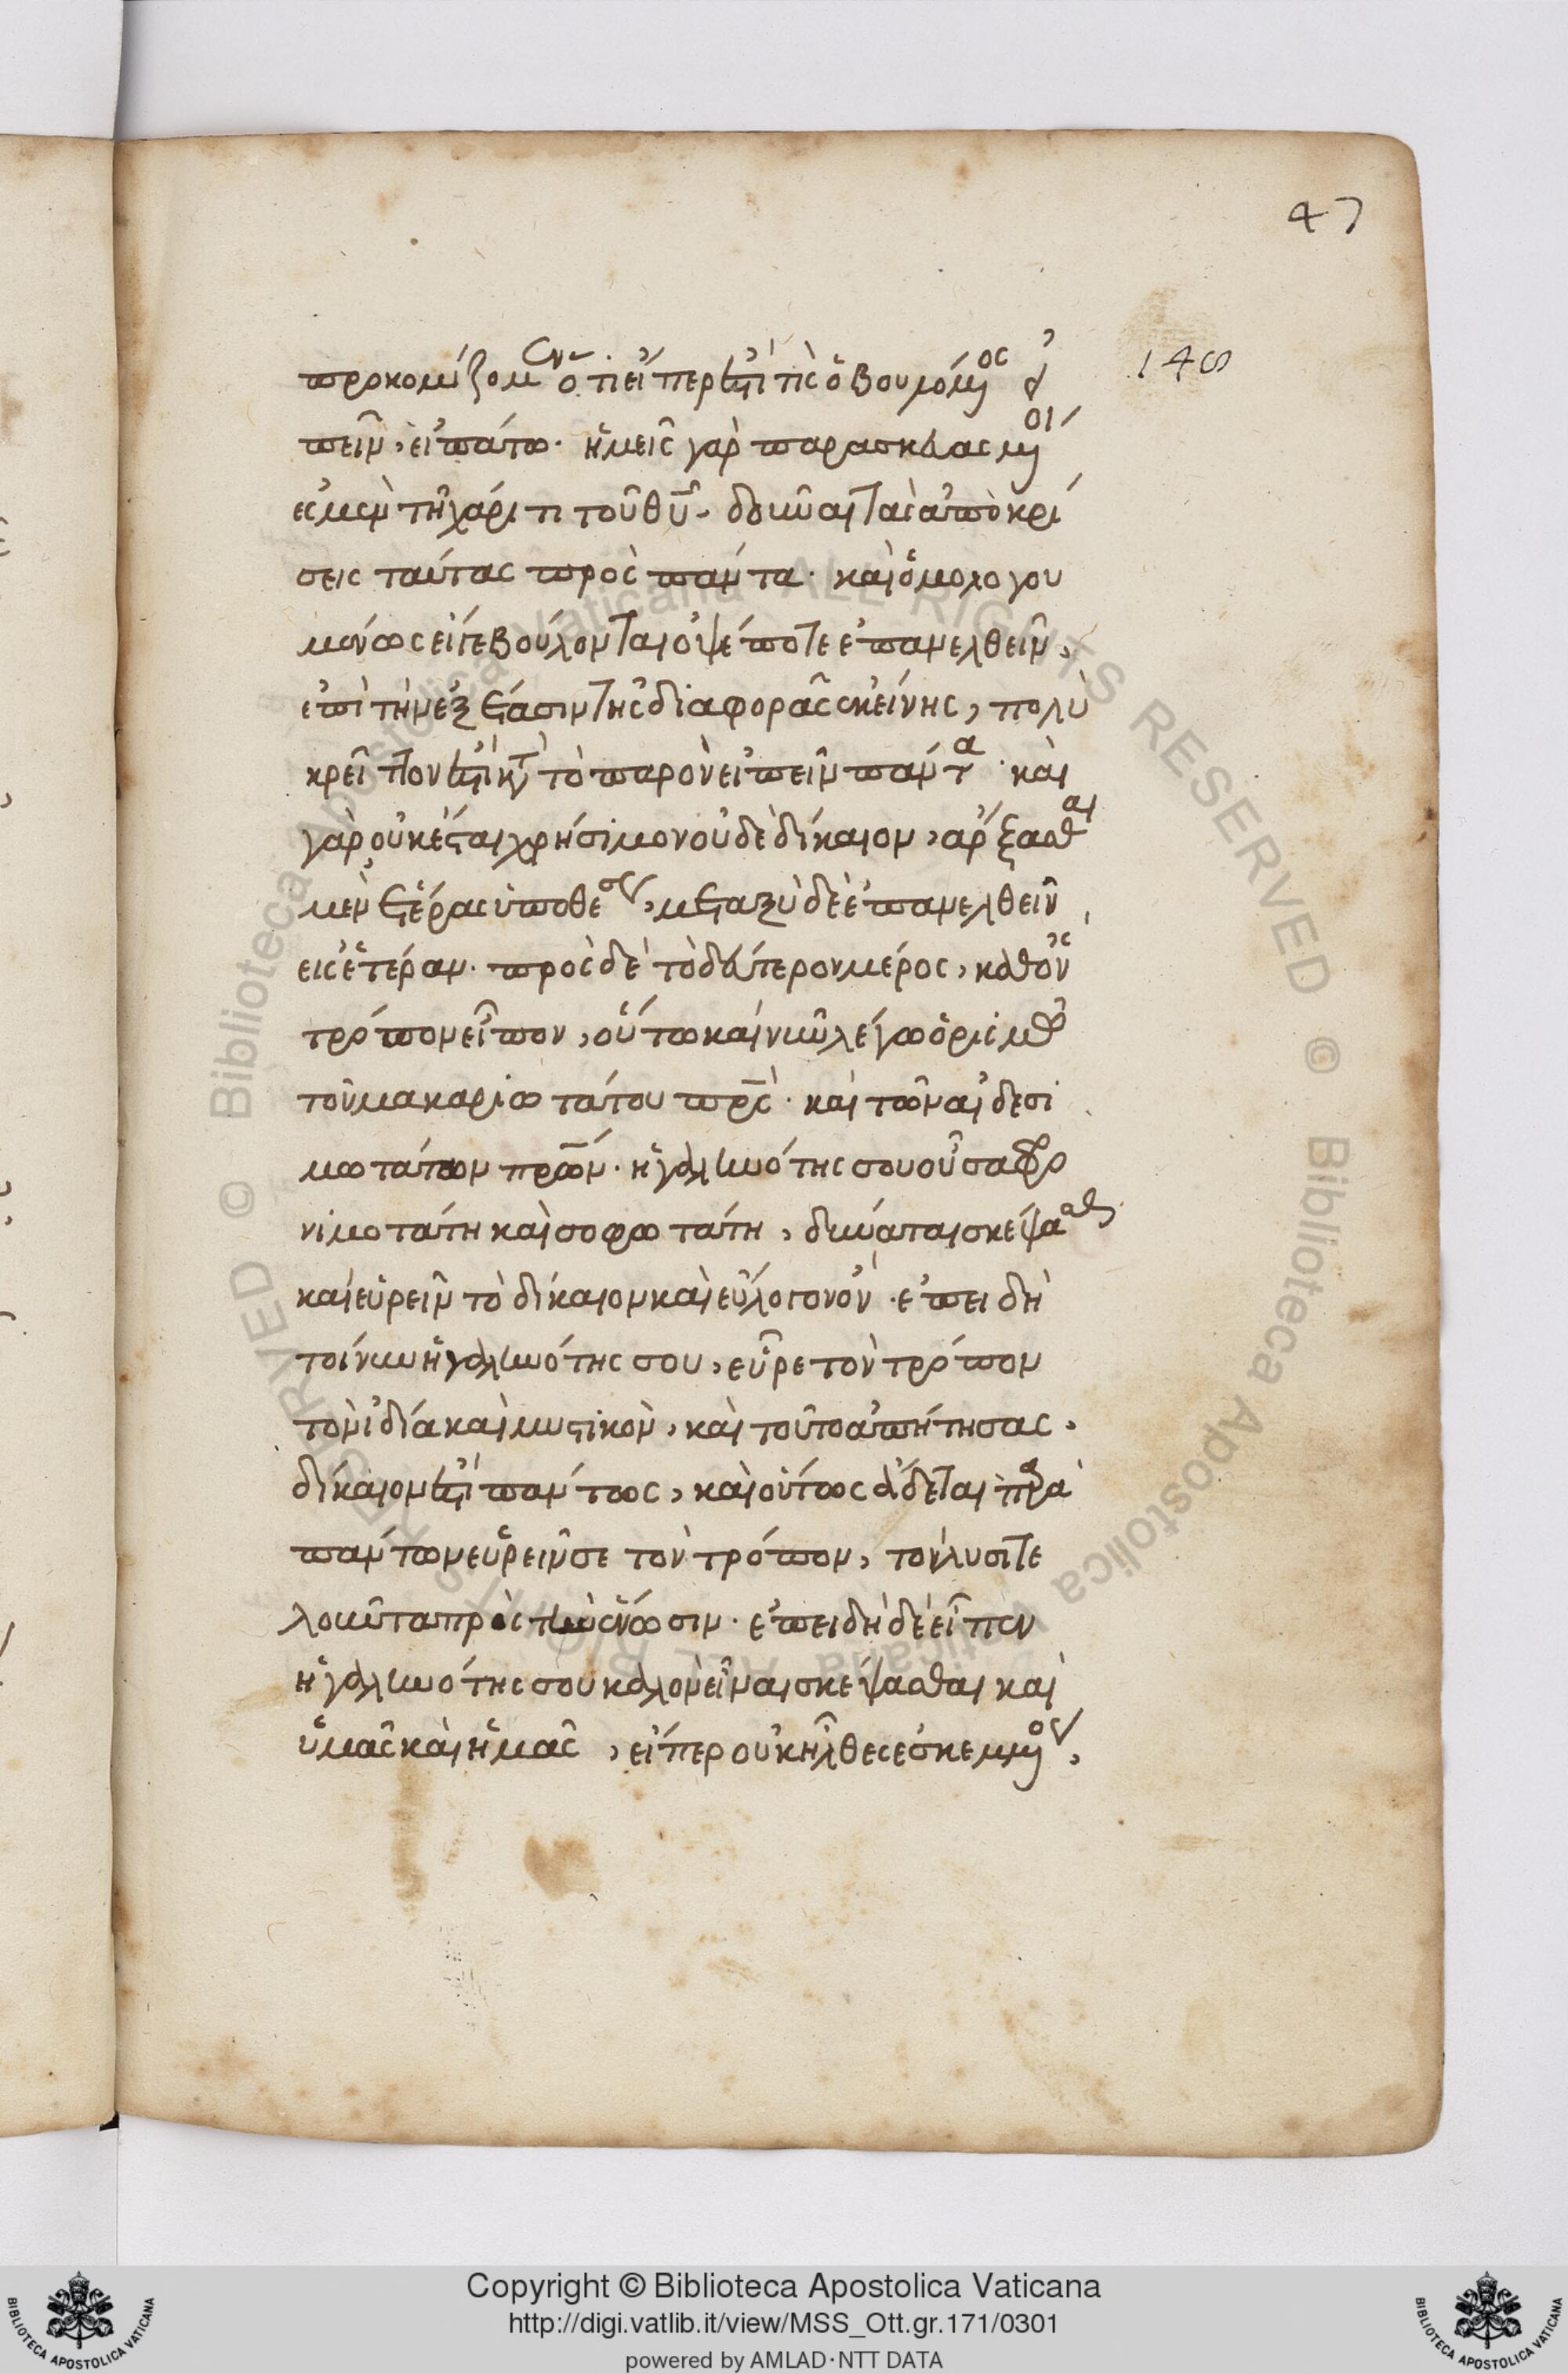 47
148
προκομίζομεν ὅτι εἴπερ ἐστί τις ὁ βουλόμενος εἰ
πεῖν, εἰπάτω· ἡμεῖς γὰρ παρασκευασμένοι
ἐσμὲν τῇ χάριτι τοῦ θῦ, δοῦναι τὰς ἀποκρί
σεις ταύτας πρὸς πάντα· καὶ ὁμολογου
μένως εἴτε βούλονται ὀψέποτε ἐπανελθεῖν,
ἐπὶ τὴν ἐξέτασιν τῆς διαφορᾶς ἐκείνης, πολὺ
κρεῖττον ἐστὶ κατὰ τὸ παρὸν εἰπεῖν πάντα· καὶ
γὰρ οὐκ ἔσται χρήσιμον οὐδὲ δίκαιον, ἄρξασθαι
μὲν ἑτέρας ὑποθέσεως, μεταξὺ δὲ ἐπανελθεῖν
εἰς ἑτέραν· πρὸς δὲ τὸ δεύτερον μέρος, καθ' ὃν
τρόπον εἶπον, οὕτω καὶ νῦν λέγω ὁρισμῷ
τοῦ μακαριωτάτου πρς· καὶ τῶν αἰδεσι
μωτάτων πρων· ἡ γαληνότης σου οὖσα φρο
νιμοτάτη καὶ σοφωτάτη, δύναται σκέψασθαι
καὶ εὑρεῖν τὸ δίκαιον καὶ εὔλογον ὄν· ἐπειδὴ
τοίνυν ἡ γαληνότης σου, εὗρε τὸν τρόπον
τὸν ἰδία καὶ μυστικὸν, καὶ τοῦτο ἀπῄτησας,
δίκαιον ἐστὶ πάντως, καὶ οὕτως ᾄδεται παρὰ
πάντων εὑρεῖν σε τὸν τρόπον, τὸν λυσιτε
λοῦντα πρὸς τὴν ἕνωσιν· ἐπειδὴ δὲ εἶπεν
ἡ γαληνότης σου καλὸν εἶναι σκέψασθαι καὶ
ὑμᾶς καὶ ἡμᾶς, εἴπερ οὐκ ἦλθες ἐσκεμμένος,
Copyright © Biblioteca Apostolica Vaticana
http://digi.vatlib.it/view/MSS_Ott.gr.171/0301
powered by AMLAD·NTT DATA